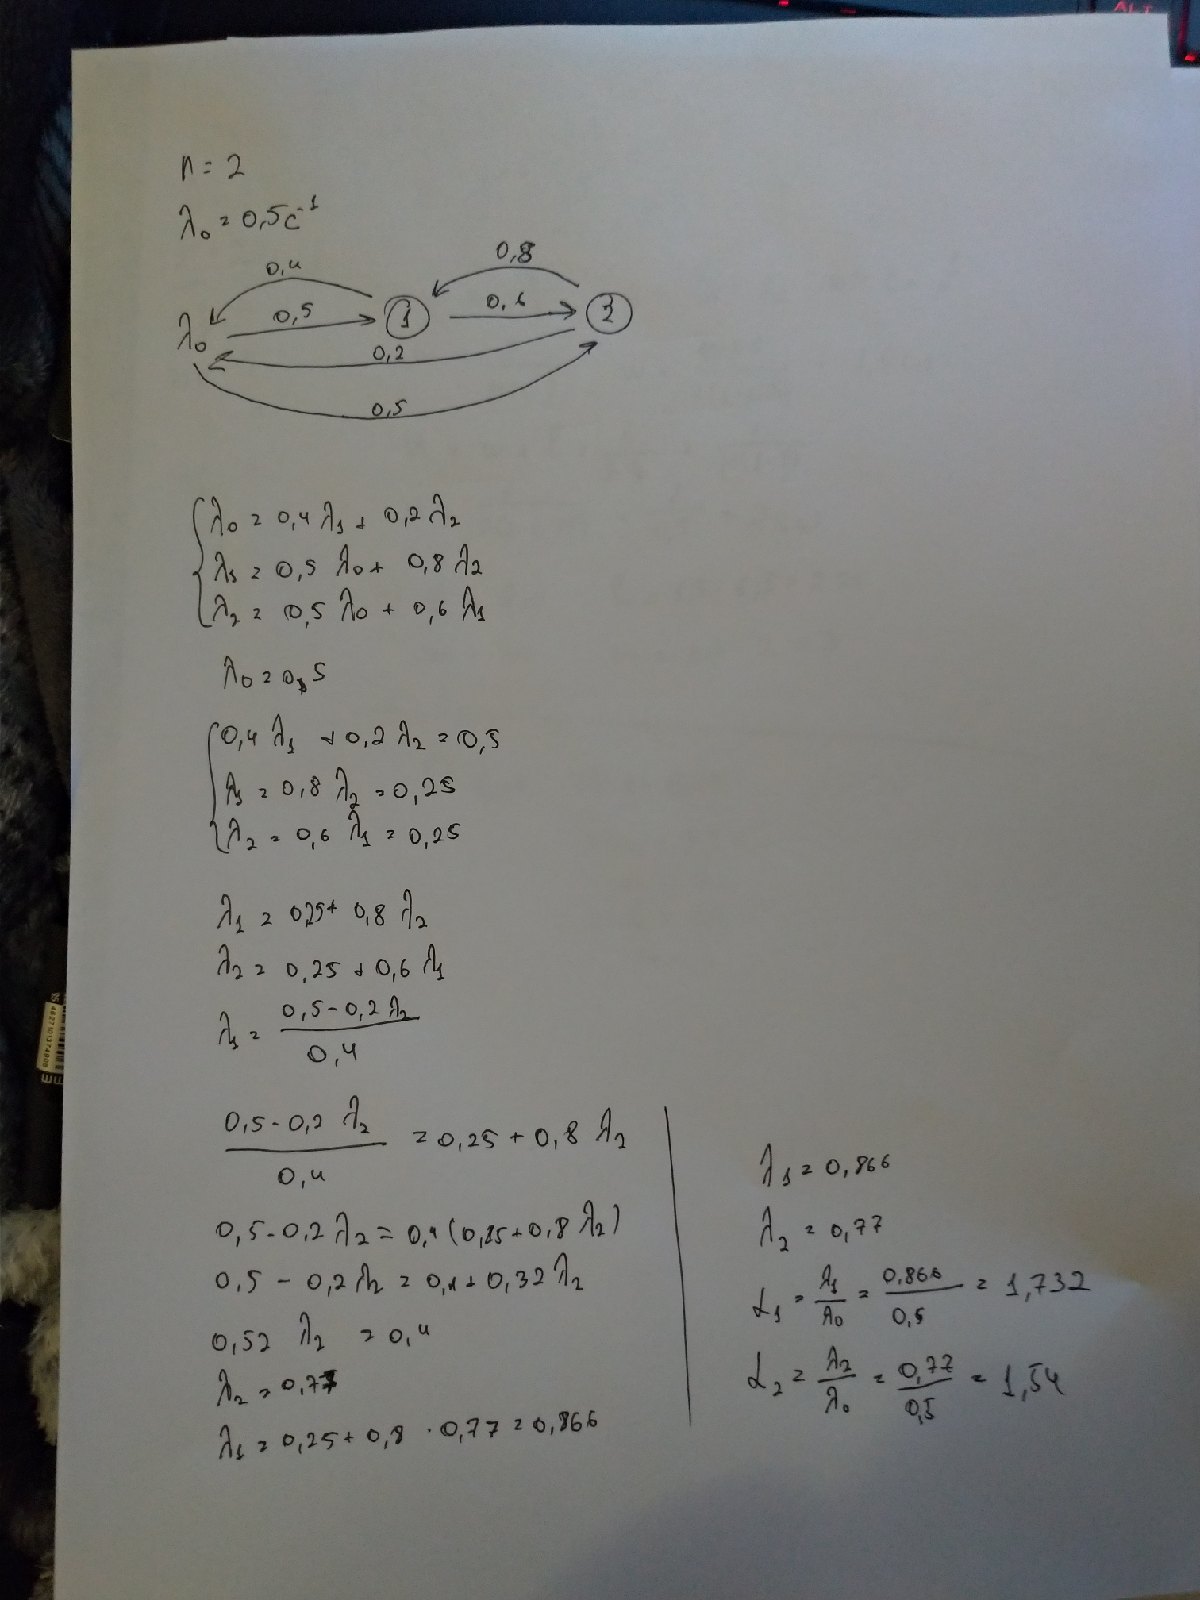 n = 2
λ₀ = 0,5 c⁻¹
0,4
0,8
0,5
1
0,6
2
λ₀
0,2
0,5
λ₀ = 0,4 λ₁ + 0,2 λ₂
λ₁ = 0,5 λ₀ + 0,8 λ₂
λ₂ = 0,5 λ₀ + 0,6 λ₁
λ₀ = 0,5
0,4 λ₁ + 0,2 λ₂ = 0,5
λ₁ = 0,8 λ₂ = 0,25
λ₂ = 0,6 λ₁ = 0,25
λ₁ = 0,25 + 0,8 λ₂
λ₂ = 0,25 + 0,6 λ₁
λ₁ = (0,5 - 0,2 λ₂) / 0,4
(0,5 - 0,2 λ₂) / 0,4 = 0,25 + 0,8 λ₂
0,5 - 0,2 λ₂ = 0,4 (0,25 + 0,8 λ₂)
0,5 - 0,2 λ₂ = 0,1 + 0,32 λ₂
0,52 λ₂ = 0,4
λ₂ = 0,77
λ₁ = 0,25 + 0,8 · 0,77 = 0,866
λ₁ = 0,866
λ₂ = 0,77
α₁ = λ₁/λ₀ = 0,866/0,5 = 1,732
α₂ = λ₂/λ₀ = 0,77/0,5 = 1,54
ALT